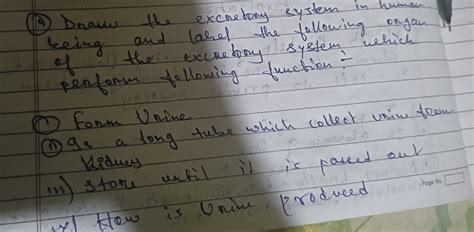 Q Draw the excretory system in human
being and label the following organ
of the excretory system which
perform following function :-
i) Form Urine
ii) Is a long tube which collect urine from
Kidney
iii) store until it is passed out
iv) How is Urine produced
Page No.